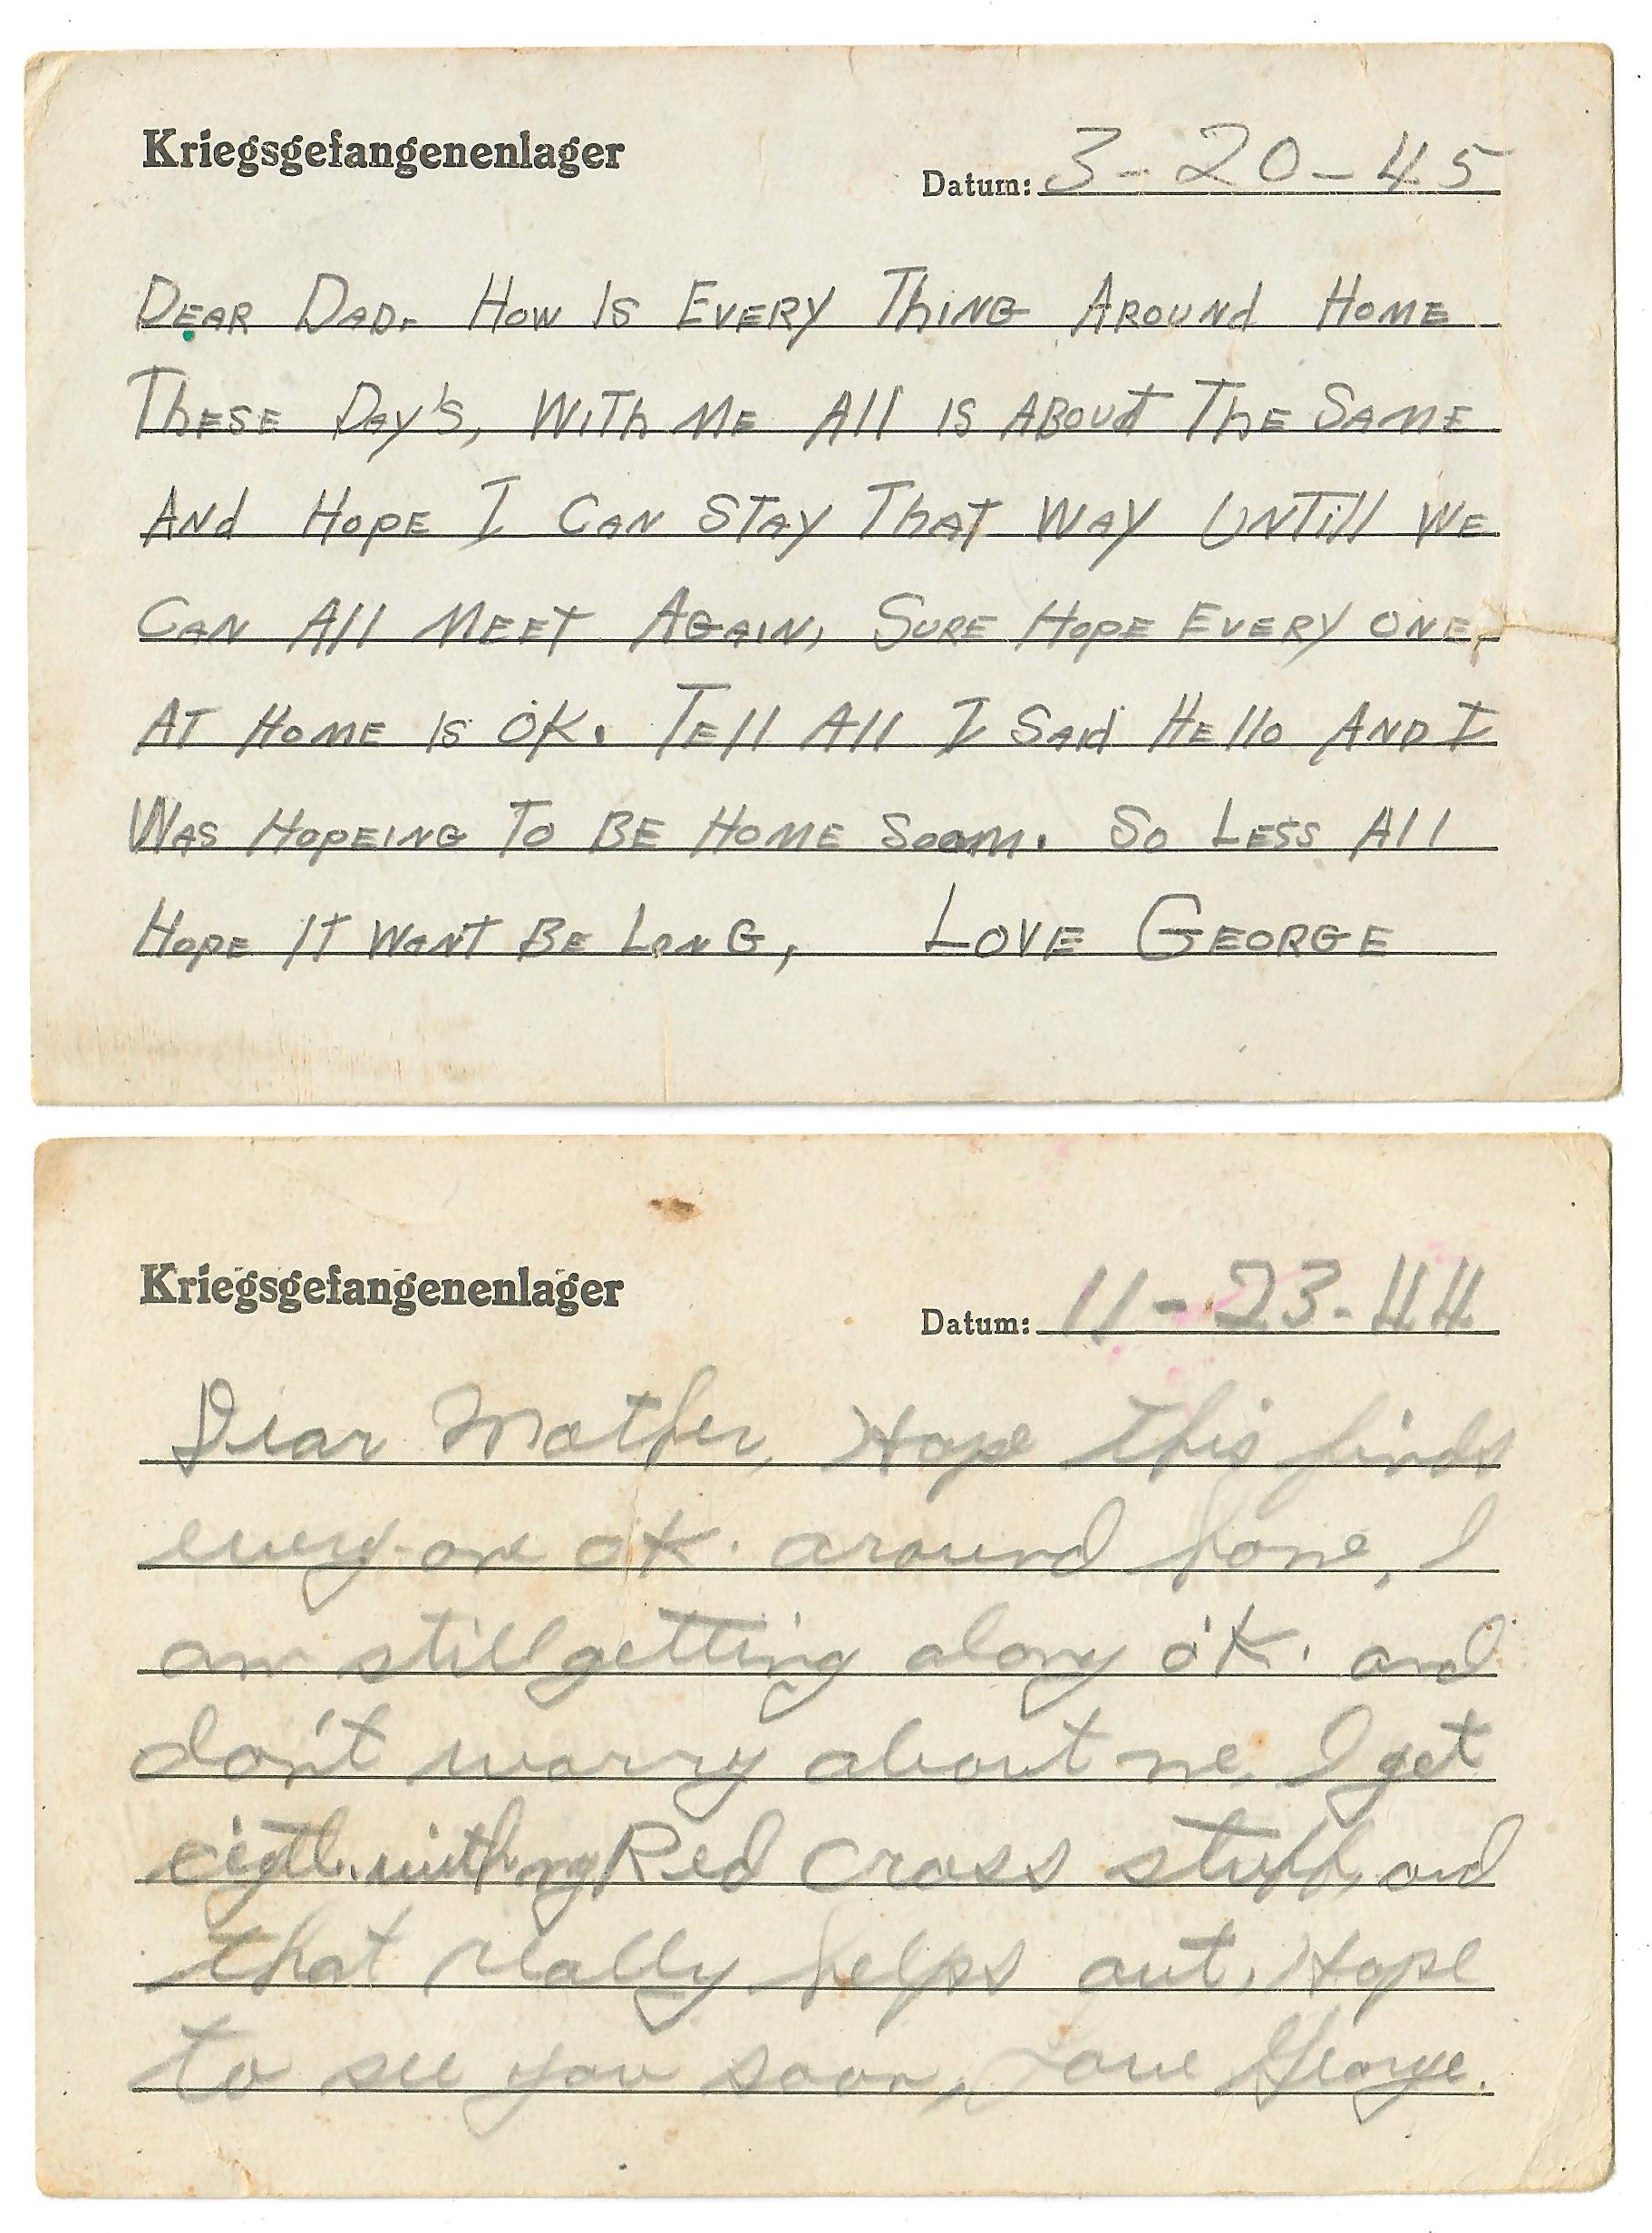 Kriegsgefangenenlager
Datum: 3-20-45
DEAR DAD. HOW IS EVERY THING AROUNd HOME
THESE DAY'S, WITH ME All IS ABOUT THE SAME
ANd HOPE I CAN STAY THAT WAY UNTill WE
CAN All MEET AGAIN, SURE HOPE EVERY ONE,
AT HOME IS OK. TEll All I SAid HEllo AND I
WAS HOPEING TO BE HOME SOON. SO LESS All
HOPE IT WONT BE LONG, LOVE GEORGE
Kriegsgefangenenlager
Datum: 11-23-44
Dear Mother, Hope this finds
every-one ok. around home, I
am still getting along ok. and
don't worry about me, I get
with my Red Cross stuff, and
that really helps out, Hope
to see you soon, Love George.